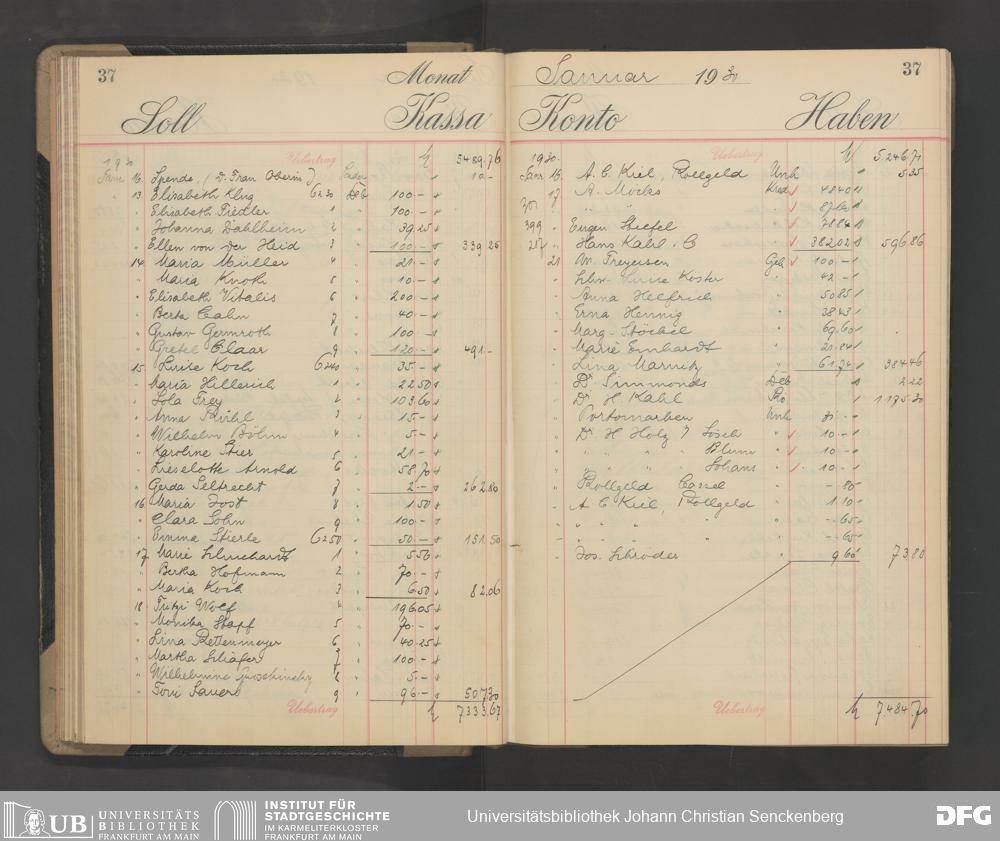 37 Monat
Soll Kassa
Uebertrag 5489.76
Spende, Frau 10.-
13. Elisabeth Klug 6230 Deb 100.-
Elisabeth Fiedler 1 100.-
Johanna Dahlheim 2 39.25
Ellen von der Heid 3 100.- 339 25
14 Maria Müller 4 21.-
Maria Knoth 5 10.-
Elisabeth Vitalis 6 200.-
Berta Cahn 7 40.-
Gustav Germroth 8 100.-
Gretel Claar 9 120.- 491.-
15 Luise Koch 6240 35.-
Maria Hillerich 1 22 50
Lola Frey 2 103 60
Anna Rühl 3 15.-
Wilhelm Böhm 4 5.-
Karoline Stier 5 21.-
Lieselotte Arnold 6 58.70
Gerda Seltrecht 7 2.- 262.80
16 Maria Jost 8 1.50
Clara Sohn 9 100.-
Emma Stierle 6250 50.- 151.50
17 Marie 1 5.56
Bertha Hofmann 2 70.-
Maria Koch 3 6.50 82.06
18 Fritzi Wolf 4 196.05
Monika Stapf 5 70.-
Lina Rettenmeyer 6 40.25
Martha Schäfer 7 100.-
Wilhelmine 8 5.-
Toni Sauer 9 96.- 507.30
Uebertrag 7333.67
Januar 1930 37
Konto Haben
1930. Uebertrag 5246.71
Janr 16. A. C. Kiel, Rollgeld Unk 5.35
17 A. Mocks Kred 48 40
30 " " 87
399 Eugen Stiefel 78 84
257 Hans Kahl. C 382 02 596 86
21 Geh 100.-
Luise Köster 42.-
Anna Helfrich 50 85
Erna Hennig 38 43
Marg. Stöckel 69.60
Marie Emhardt 21.84
Lina Marnitz 61.74 384 46
Dr Simmonds Deb 2.22
Dr H Kahl 1175.30
Portomarken Unk 30.-
Dr H Holz 7 Lösch 10.-
" " " " Blum 10.-
" " " " Johans 10.-
Rollgeld Cassel -.80
A C Kiel, Rollgeld 1 10
" " " -.65
" " " -.65
Jos. Schröder 9 60 73.80
Uebertrag 7.484.70
UB UNIVERSITÄTS BIBLIOTHEK FRANKFURT AM MAIN
INSTITUT FÜR STADTGESCHICHTE IM KARMELITERKLOSTER FRANKFURT AM MAIN
Universitätsbibliothek Johann Christian Senckenberg
DFG